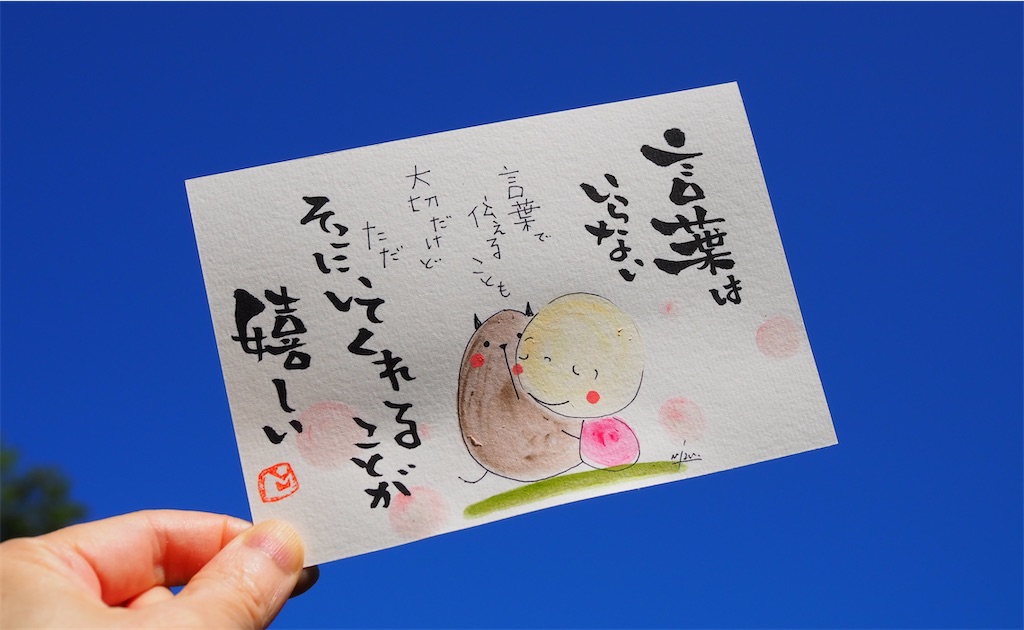 言葉は
いらない
言葉で
伝える
ことも
大切だけど
ただ
そこに
いてくれる
ことが
嬉しい